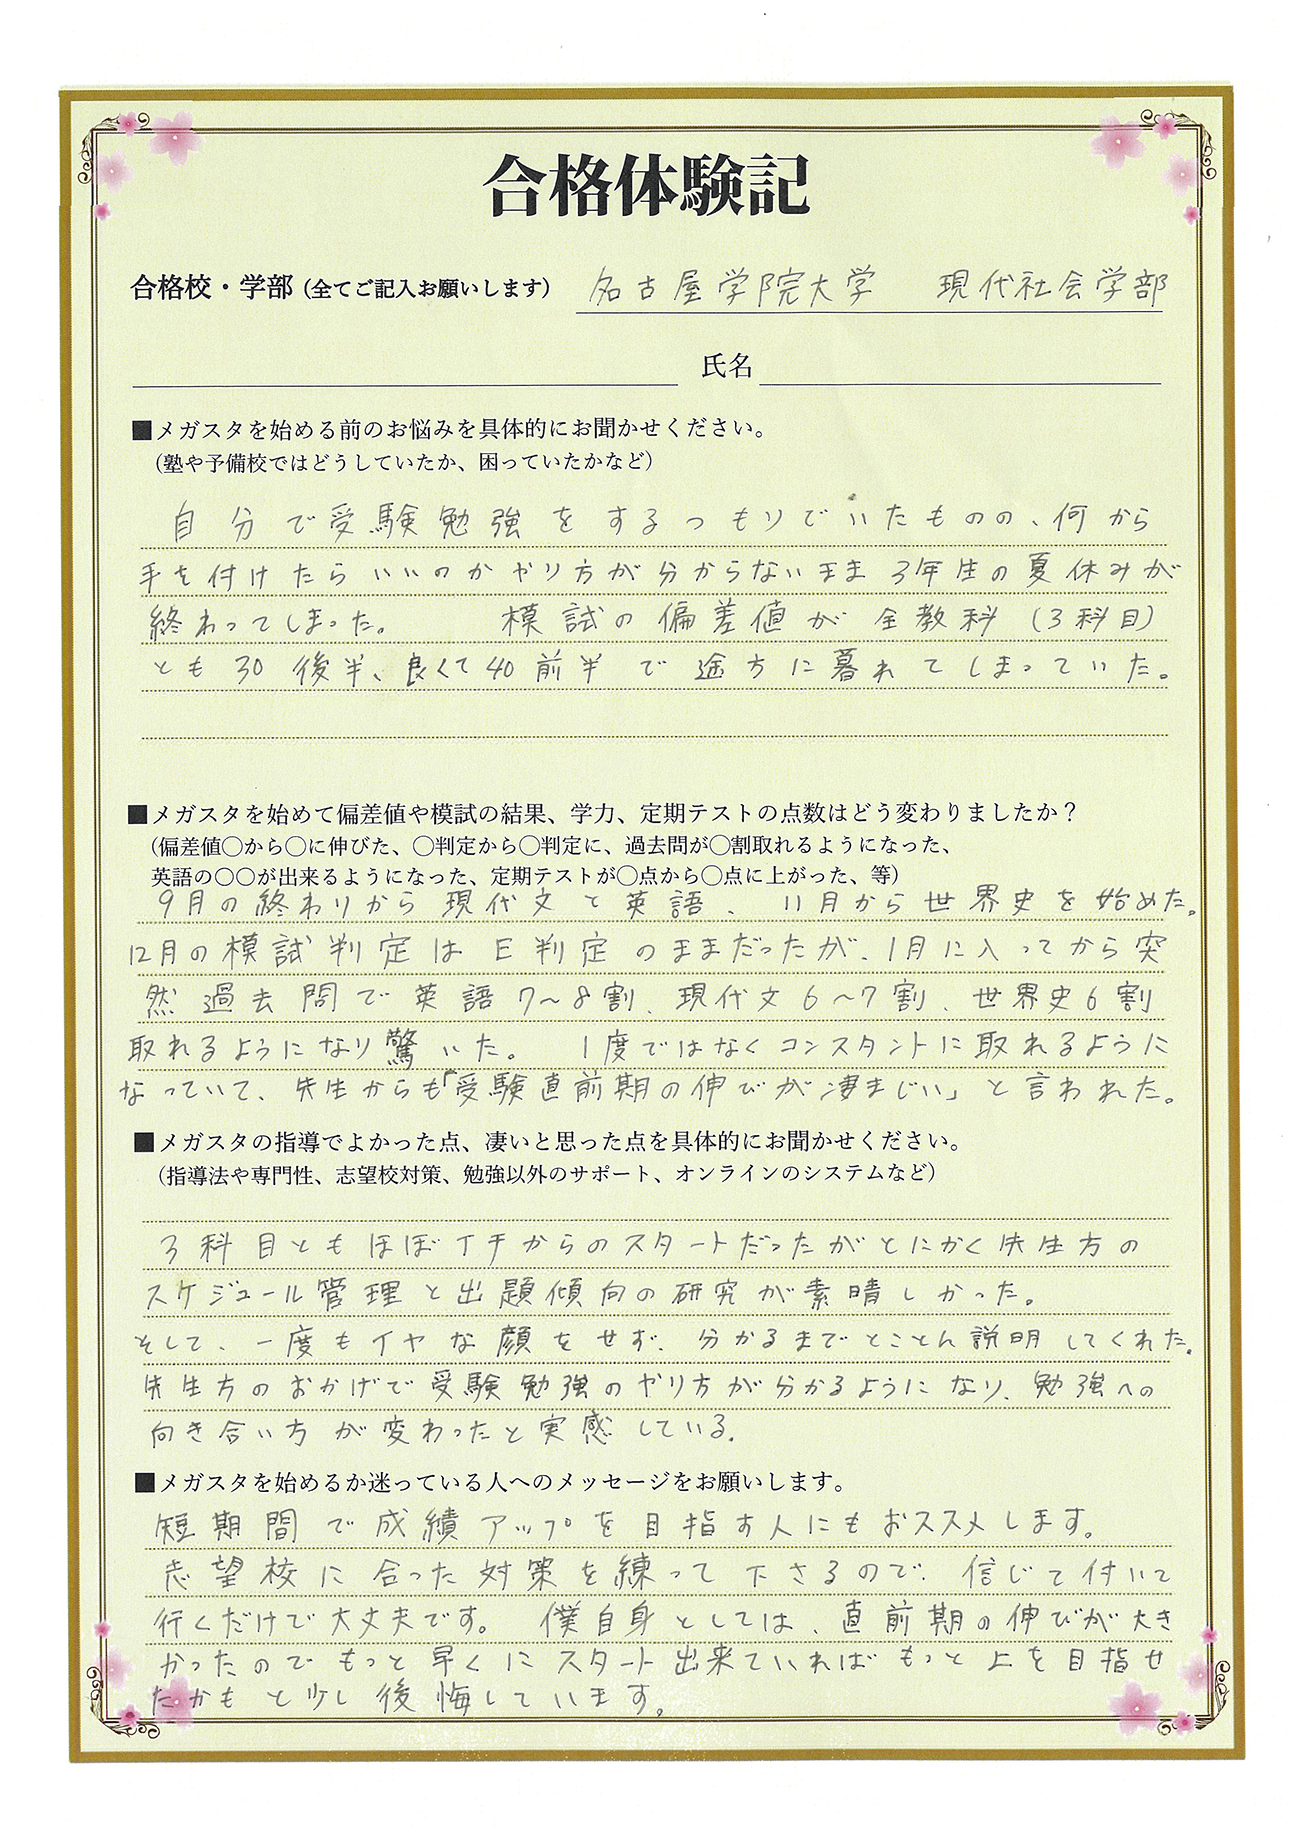 合格体験記
合格校・学部（全てご記入お願いします） 名古屋学院大学 現代社会学部
氏名
■メガスタを始める前のお悩みを具体的にお聞かせください。
（塾や予備校ではどうしていたか、困っていたかなど）
自分で受験勉強をするつもりでいたものの、何から
手を付けたらいいのかやり方が分からないまま3年生の夏休みが
終わってしまった。 模試の偏差値が全教科（3科目）
とも30後半、良くて40前半で途方に暮れてしまっていた。
■メガスタを始めて偏差値や模試の結果、学力、定期テストの点数はどう変わりましたか？
（偏差値◯から◯に伸びた、◯判定から◯判定に、過去問が◯割取れるようになった、
英語の◯◯が出来るようになった、定期テストが◯点から◯点に上がった、等）
9月の終わりから現代文と英語、11月から世界史を始めた。
12月の模試判定はE判定のままだったが、1月に入ってから突
然過去問で英語7〜8割、現代文6〜7割、世界史6割
取れるようになり驚いた。 1度ではなくコンスタントに取れるように
なっていて、先生からも「受験直前期の伸びが凄まじい」と言われた。
■メガスタの指導でよかった点、凄いと思った点を具体的にお聞かせください。
（指導法や専門性、志望校対策、勉強以外のサポート、オンラインのシステムなど）
3科目ともほぼイチからのスタートだったがとにかく先生方の
スケジュール管理と出題傾向の研究が素晴しかった。
そして、一度もイヤな顔をせず、分かるまでとことん説明してくれた。
先生方のおかげで受験勉強のやり方が分かるようになり、勉強への
向き合い方が変わったと実感している。
■メガスタを始めるか迷っている人へのメッセージをお願いします。
短期間で成績アップを目指す人にもおススメします。
志望校に合った対策を練って下さるので、信じて付いて
行くだけで大丈夫です。 僕自身としては、直前期の伸びが大き
かったのでもっと早くにスタート出来ていればもっと上を目指せ
たかもと少し後悔しています。